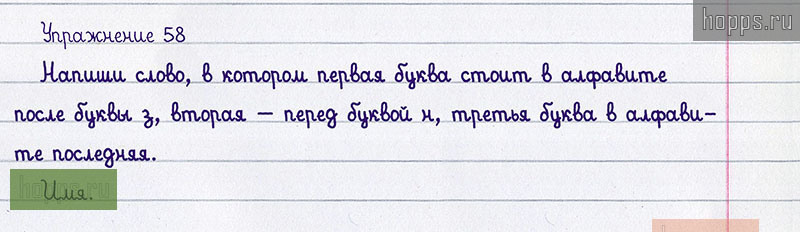 hopps.ru
Упражнение 58
Напиши слово, в котором первая буква стоит в алфавите
после буквы з, вторая — перед буквой н, третья буква в алфави-
те последняя.
Имя.